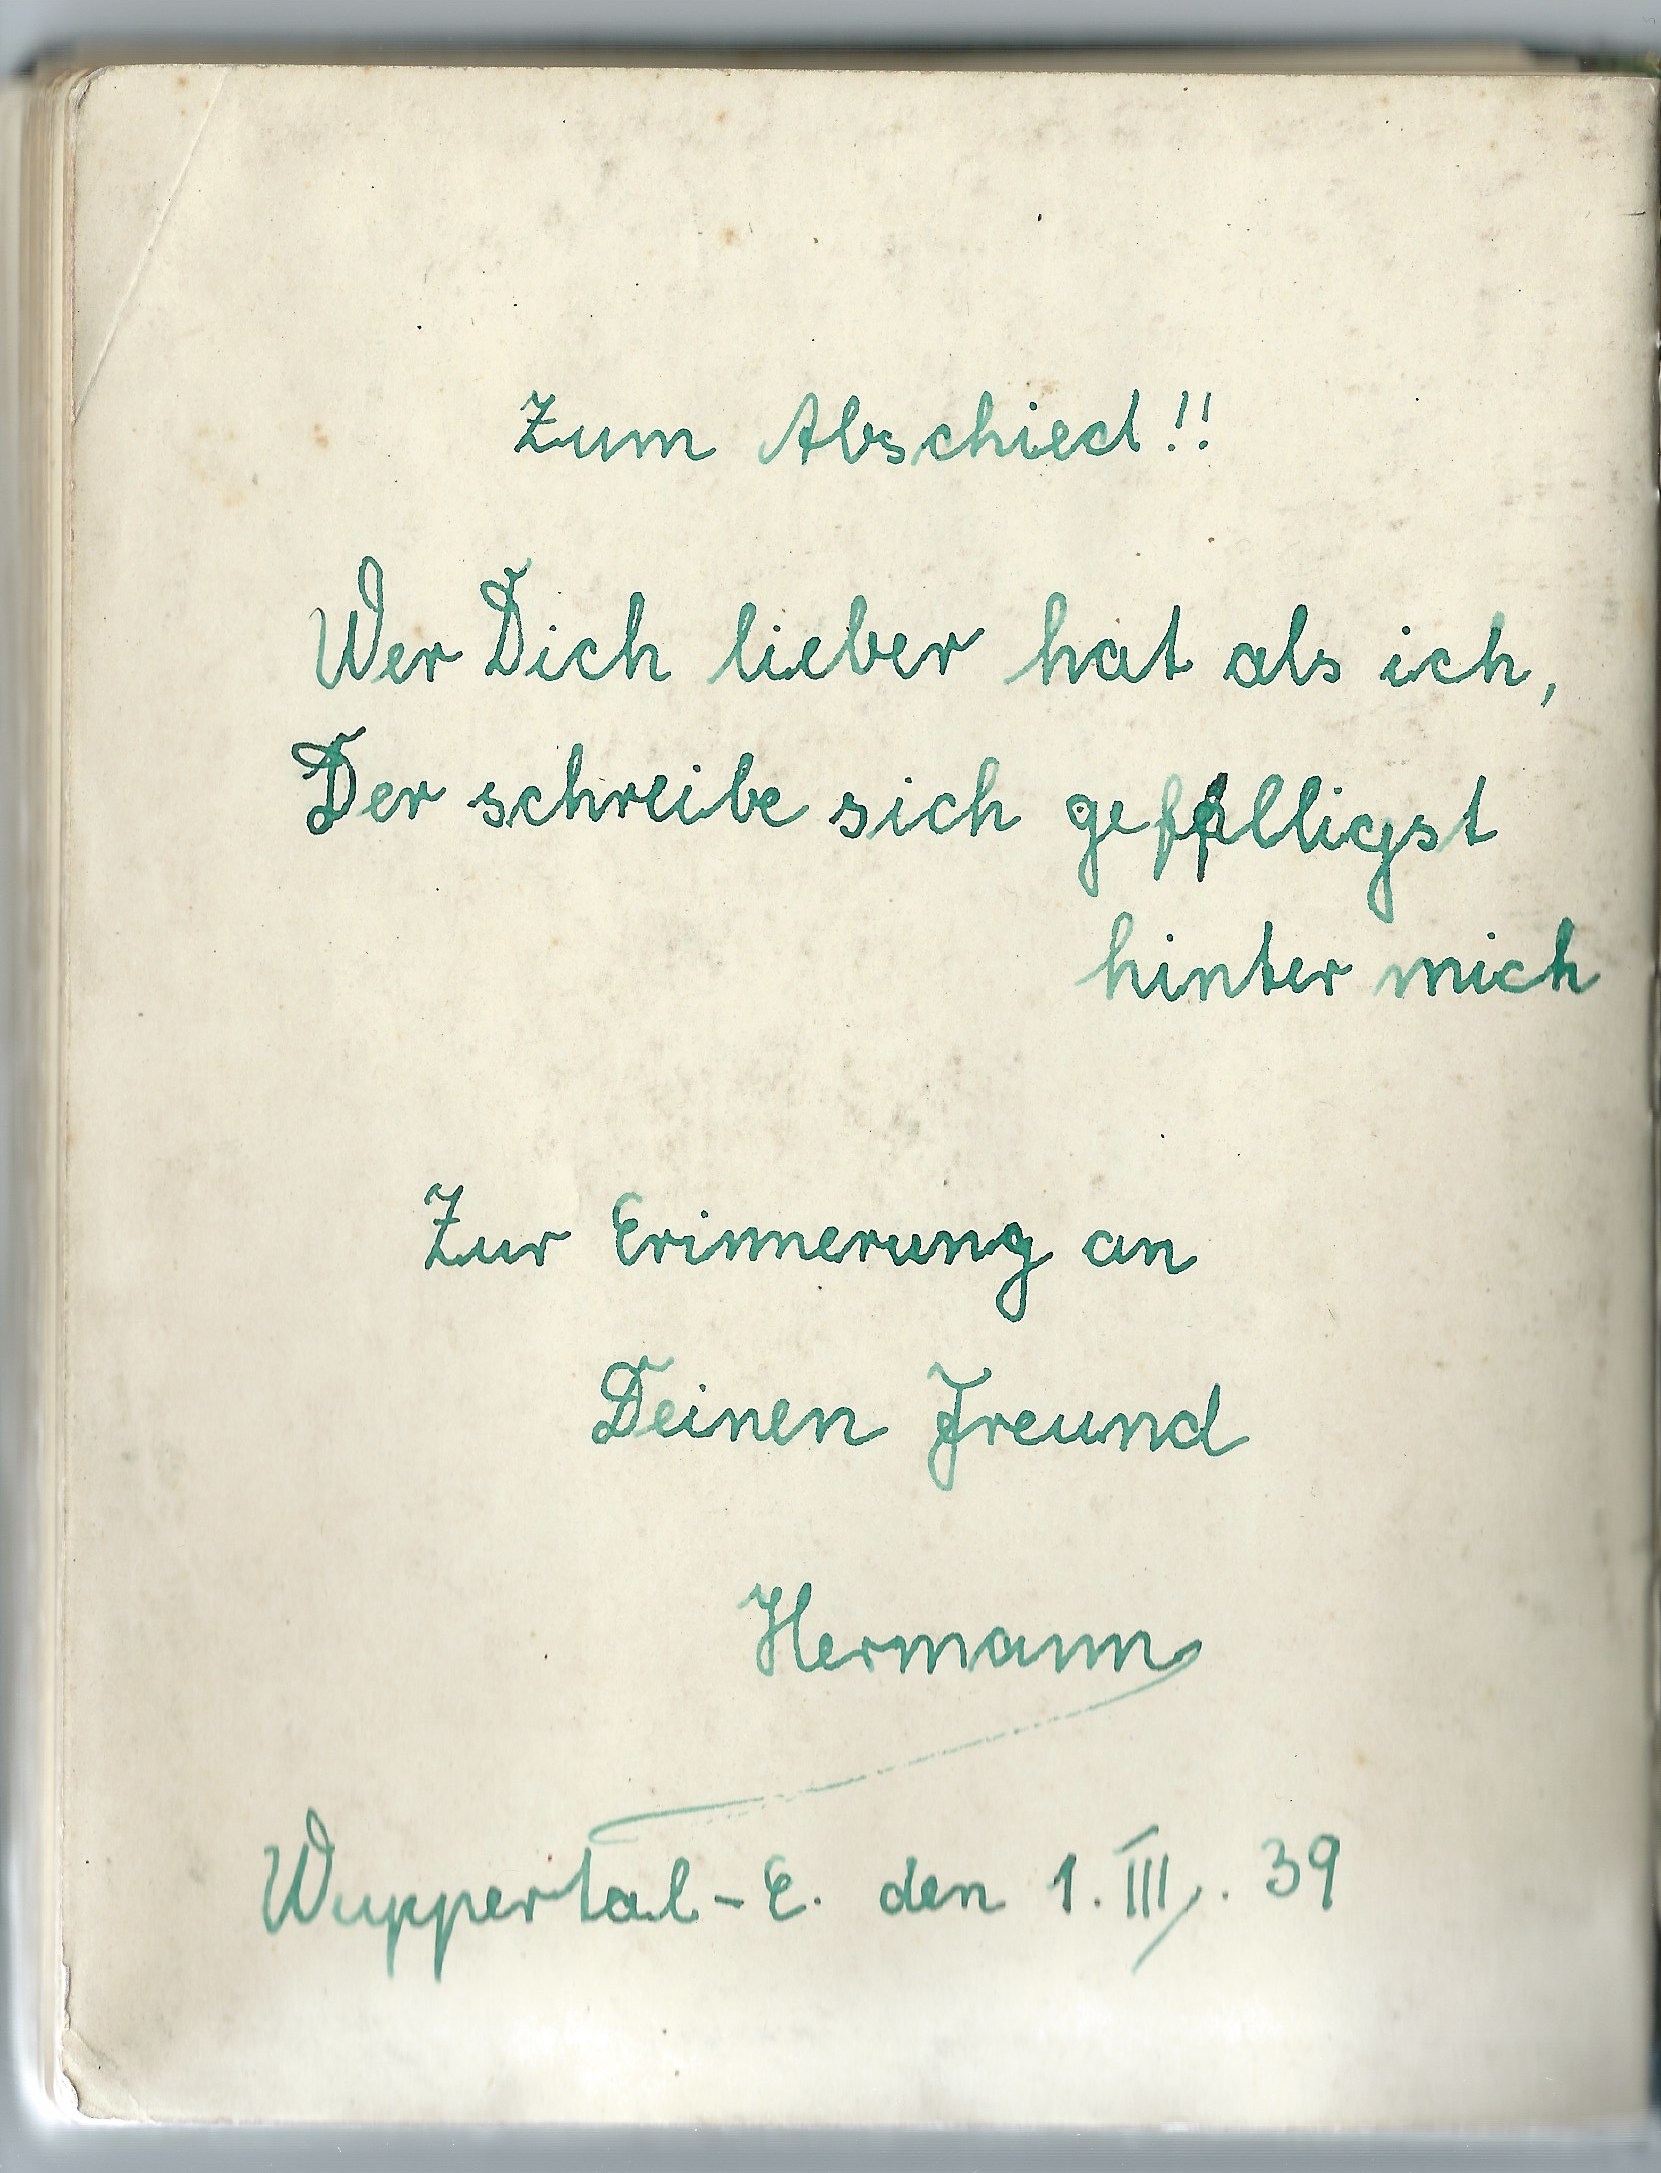 Zum Abschied!!
Wer Dich lieber hat als ich,
Der schreibe sich gefälligst
hinter mich
Zur Erinnerung an
Deinen Freund
Hermann
Wuppertal-E. den 1. III. 39